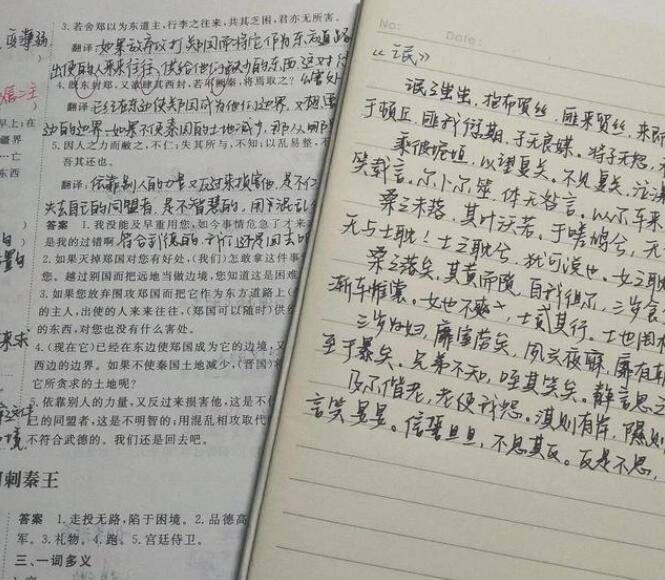 3.若舍郑以为东道主,行李之往来,共其乏困,君亦无所害。
翻译:如果放弃攻打郑国而将它作为东方道路
出使的人来来往往,供给他们缺少的东西,这对
4.既东封郑,又欲肆其西封,若不阙秦,将焉取之?
翻译:已经在东边使郑国成为他的边界,又想
边的边界,如果不使秦国的土地减少,那从哪里
5.因人之力而敝之,不仁;失其所与,不知;以乱易整,不
吾其还也。
翻译:依靠别人的力量又反过来损害他,是不仁
失去自己的同盟者,是不智慧的,用混乱
答案 1.我没能及早重用您,如今事情危急了才来
是我的过错啊。
2.如果灭掉郑国对您有好处,(我们)怎敢拿这件事
您。越过别国而把远地当做边境,您知道这是困难
3.如果您放弃围攻郑国而把它作为东方道路上(
的主人,出使的人来来往往,(郑国可以随时)供给
的东西,对您也没有什么害处。
4.(现在它)已经在东边使郑国成为它的边境,又
西边的边界。如果不使秦国土地减少,(晋国)将
它所贪求的土地呢?
5.依靠别人的力量,又反过来损害他,这是不仁
己的同盟者,这是不明智的;用混乱相攻取代
不符合武德的。我们还是回去吧。
刺秦王
答案 1.走投无路,陷于困境。2.品德高
军。3.礼物。4.跑。5.宫廷侍卫。
三、一词多义
No: Date:
《氓》
氓之蚩蚩,抱布贸丝,匪来贸丝,来即
于顿丘,匪我愆期,子无良媒。将子无怒,
乘彼垝垣,以望复关。不见复关,泣涕
笑载言。尔卜尔筮,体无咎言。以尔车来
桑之未落,其叶沃若,于嗟鸠兮,无
无与士耽!士之耽兮,犹可说也。女之耽
桑之落矣,其黄而陨,自我徂尔,三岁食
渐车帷裳。女也不爽,士贰其行。士也罔
三岁为妇,靡室劳矣,夙兴夜寐,靡有朝
至于暴矣。兄弟不知,咥其笑矣。静言思之
及尔偕老,老使我怨。淇则有岸,隰则
言笑晏晏。信誓旦旦,不思其反。反是不思,